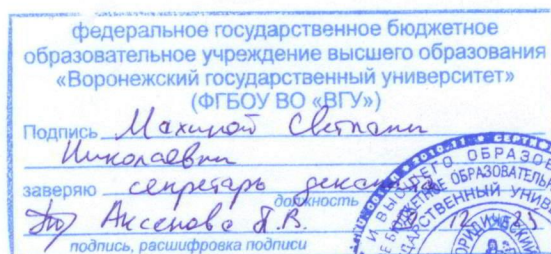 федеральное государственное бюджетное
образовательное учреждение высшего образования
«Воронежский государственный университет»
(ФГБОУ ВО «ВГУ»)
Подпись Махиной Светланы
Николаевны
заверяю секретарь деканата
должность
Аксенова
подпись, расшифровка подписи